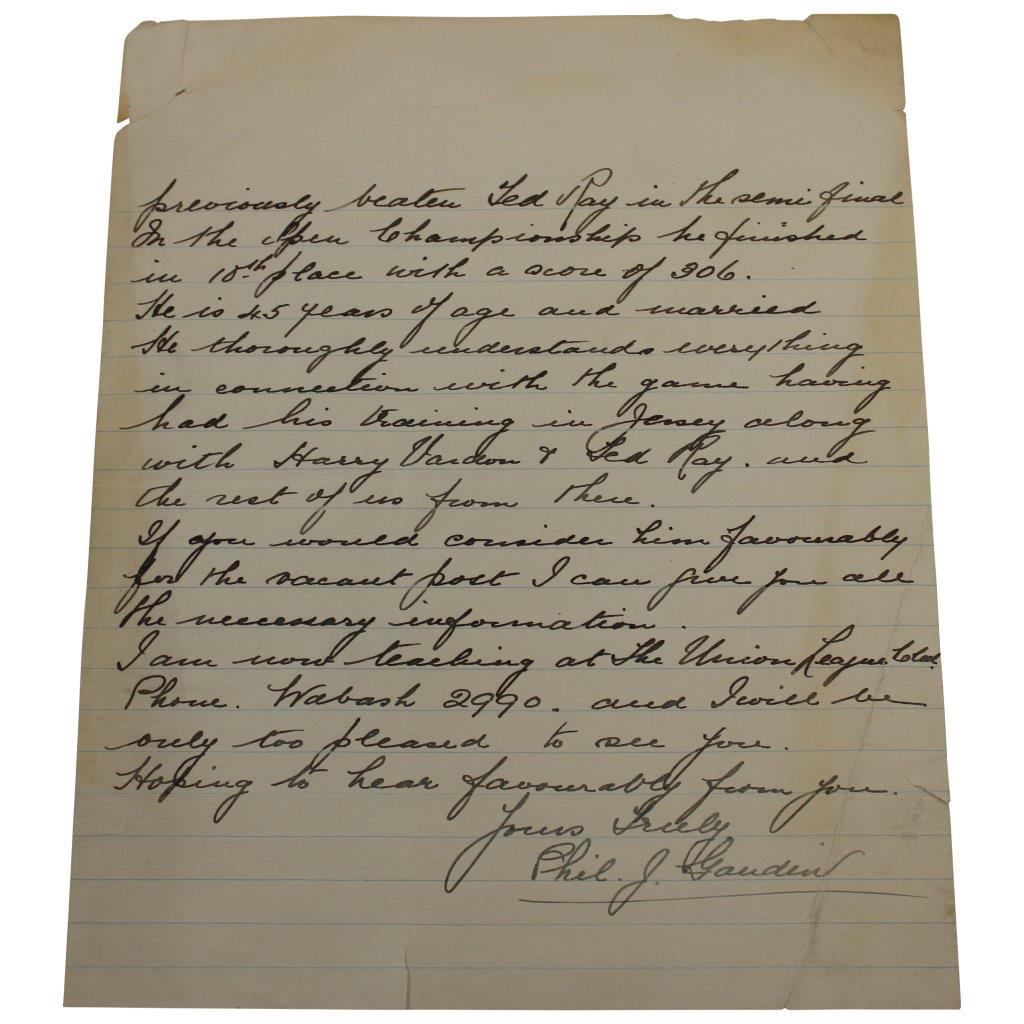 previously beaten Ted Ray in the semi final
In the Open Championship he finished
in 10th place with a score of 306.
He is 45 years of age and married
He thoroughly understands everything
in connection with the game having
had his training in Jersey along
with Harry Vardon & Ted Ray. and
the rest of us from there.
If you would consider him favourably
for the vacant post I can give you all
the necessary information.
I am now teaching at The Union League Club.
Phone. Wabash 2990. and I will be
only too pleased to see you.
Hoping to hear favourably from you.
Yours Truly
Phil. J. Gaudin